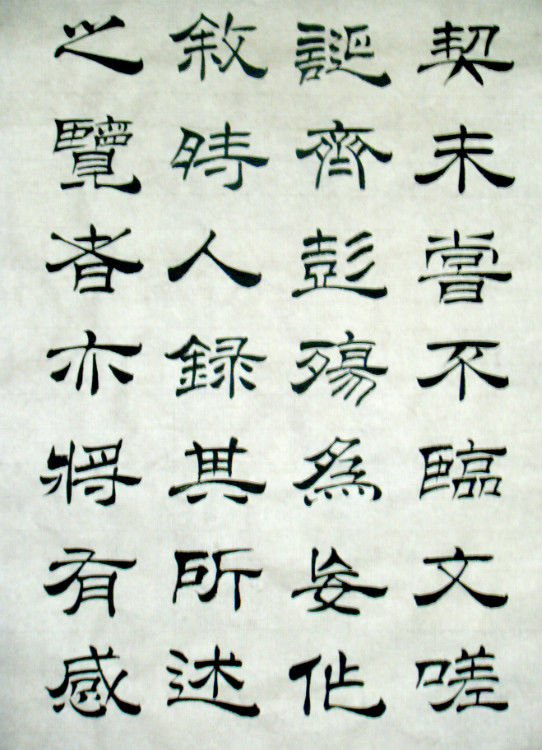 契未嘗不臨文嗟
誕齊彭殤爲妄作
敘時人録其所述
之覽者亦將有感